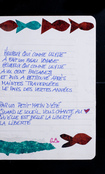 HEUREUX QUI COMME ULYSSE
A FAIT UN BEAU VOYAGE
HEUREUX QUI COMME ULYSSE
A VU CENT PAYSAGES
ET PUIS A RETROUVÉ APRÈS
MAINTES TRAVERSÉES
LE PAYS DES VERTES ANNÉES
PAR UN PETIT MATIN D'ÉTÉ
QUAND LE SOLEIL VOUS CHANTE AU
QU'ELLE EST BELLE LA LIBERTÉ
LA LIBERTÉ